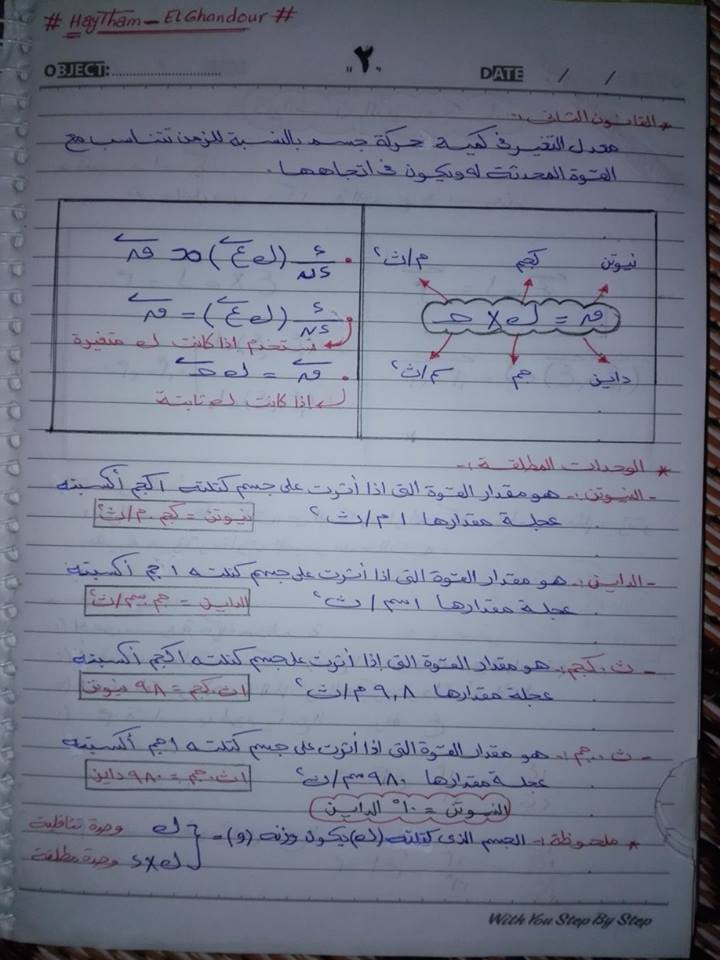 # HayTham - ElGhandour #
OBJECT:
"٢"
DATE / /
* القانون الثانى :-
معدل التغير فى كمية حركة جسم بالنسبة للزمن تتناسب مع
القوة المحدثة له ويكون فى اتجاهها.
نيوتن كجم م/ث²
ق = ك × حـ
داين جم سم/ث²
• ء/ءن (ك ع) ∝ ق
ء/ءن (ك ع) = ق
تستخدم إذا كانت ك متغيرة
• ق = ك حـ
إذا كانت ك ثابتة
* الوحدات المطلقة :-
- النيوتن :- هو مقدار القوة التى اذا أثرت على جسم كتلته ١كجم أكسبته
عجلة مقدارها ١ م/ث² نيوتن = كجم . م/ث²
- الداين :- هو مقدار القوة التى اذا أثرت على جسم كتلته ١جم أكسبته
عجلة مقدارها ١سم/ث² الداين = جم . سم/ث²
- ث.كجم :- هو مقدار القوة التى إذا أثرت على جسم كتلته ١كجم أكسبته
عجلة مقدارها ٩,٨ م/ث² ١ث.كجم = ٩,٨ نيوتن
- ث.جم :- هو مقدار القوة التى اذا أثرت على جسم كتلته ١جم أكسبته
عجلة مقدارها ٩٨٠ سم/ث² ١ث.جم = ٩٨٠ داين
النيوتن = ١٠⁵ الداين
* ملحوظة :- الجسم الذى كتلته (ك) يكون وزنه (و) = { ك وحدة تثاقلية
ك×ء وحدة مطلقة
With You Step By Step